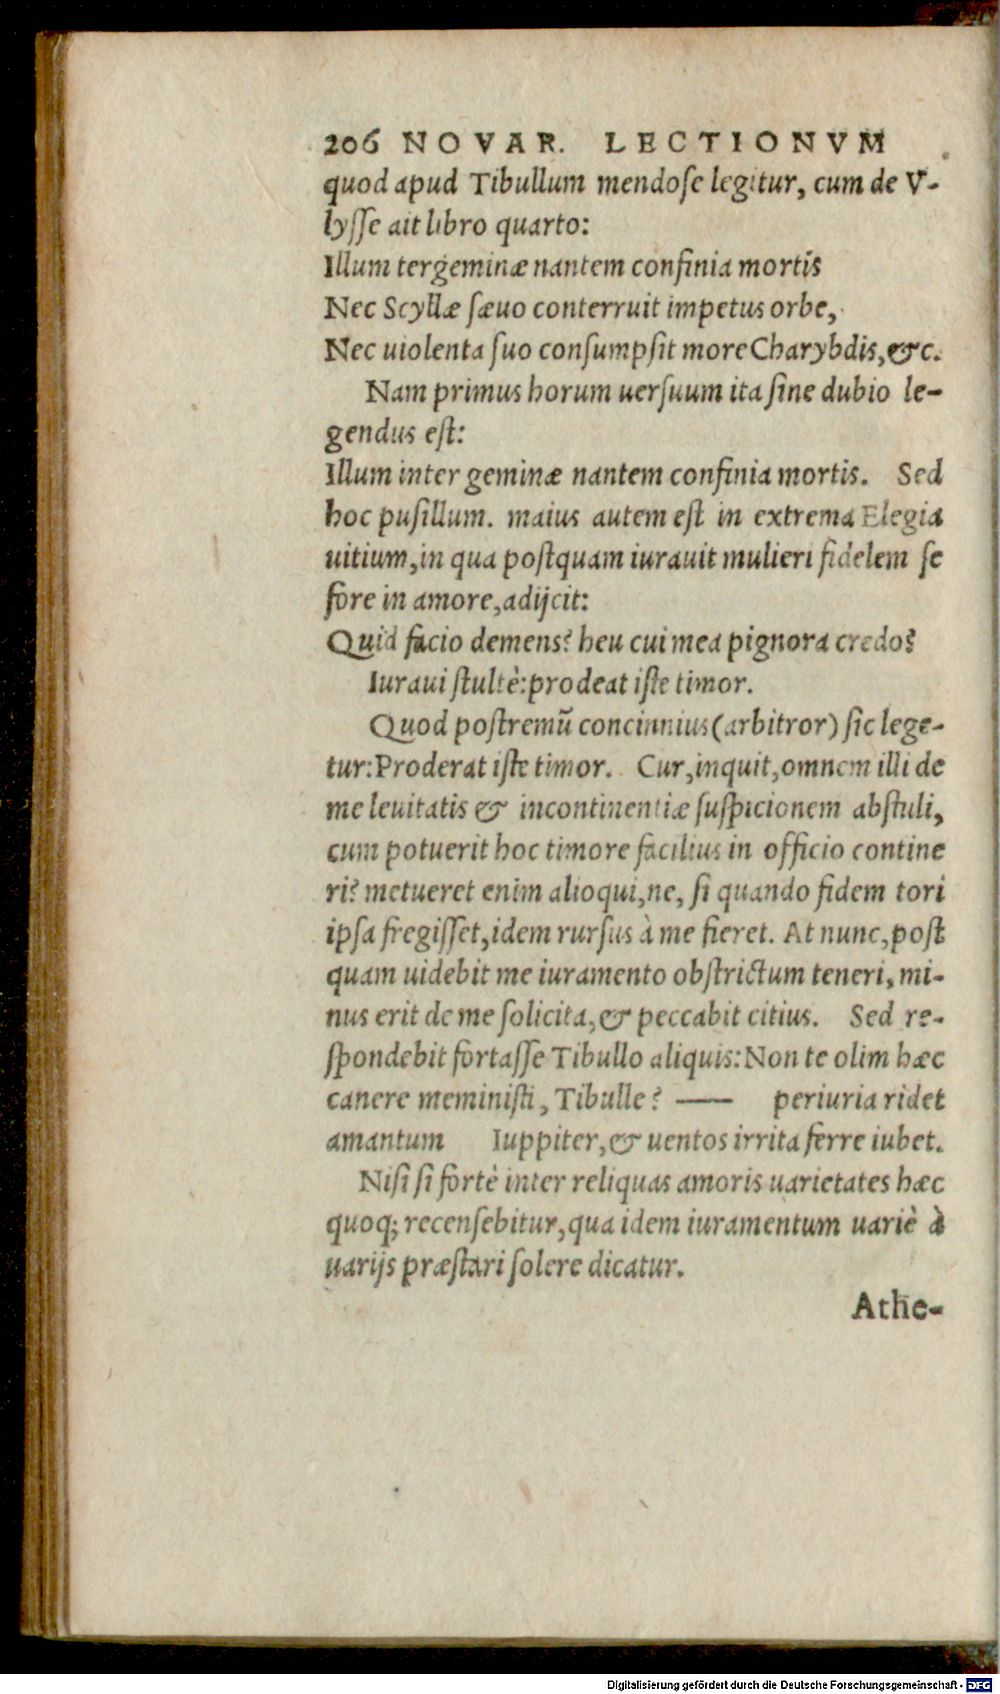 206 NOVAR. LECTIONVM
quod apud Tibullum mendose legitur, cum de V-
lysse ait libro quarto:
Illum tergeminæ nantem confinia mortis
Nec Scyllæ sæuo conterruit impetus orbe,
Nec uiolenta suo consumpsit more Charybdis, &c.
Nam primus horum uersuum ita sine dubio le-
gendus est:
Illum inter geminæ nantem confinia mortis. Sed
hoc pusillum. maius autem est in extrema Elegia
uitium, in qua postquam iurauit mulieri fidelem se
fore in amore, adijcit:
Quid facio demens? heu cui mea pignora credo?
Iuraui stultè: prodeat iste timor.
Quod postremū concinnius (arbitror) sic lege-
tur: Proderat iste timor. Cur, inquit, omnem illi de
me leuitatis & incontinentiæ suspicionem abstuli,
cum potuerit hoc timore facilius in officio contine
ri? metueret enim alioqui, ne, si quando fidem tori
ipsa fregisset, idem rursus à me fieret. At nunc, post
quam uidebit me iuramento obstrictum teneri, mi-
nus erit de me solicita, & peccabit citius. Sed re-
spondebit fortasse Tibullo aliquis: Non te olim hæc
canere meministi, Tibulle? — periuria ridet
amantum Iuppiter, & uentos irrita ferre iubet.
Nisi si fortè inter reliquas amoris uarietates hæc
quoq; recensebitur, qua idem iuramentum uariè à
uarijs præstari solere dicatur.
Athe-
Digitalisierung gefördert durch die Deutsche Forschungsgemeinschaft - DFG